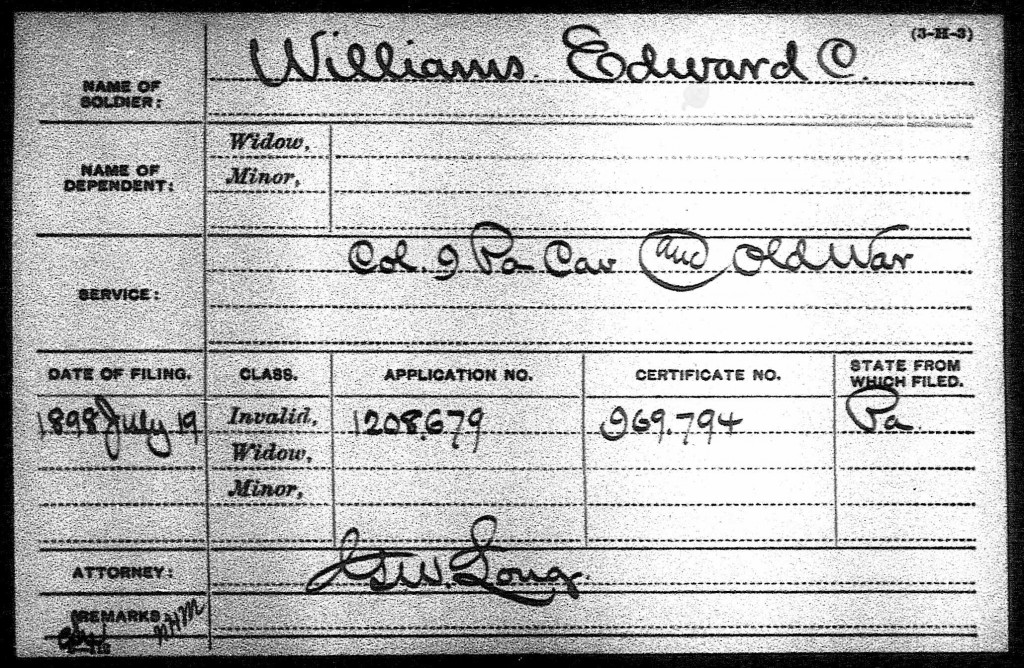 (3-H-3)
NAME OF SOLDIER: Williams Edward C.
NAME OF DEPENDENT: Widow,
Minor,
SERVICE: Col. 9 Pa Cav and Old War
DATE OF FILING. CLASS. APPLICATION NO. CERTIFICATE NO. STATE FROM WHICH FILED.
1898 July 19 Invalid, 1208,679 969.794 Pa.
Widow,
Minor,
ATTORNEY: W. Long.
REMARKS: